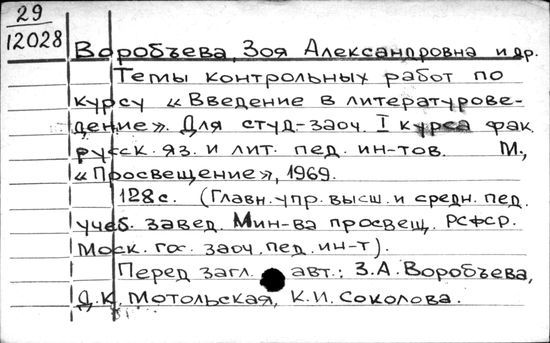 29
12028
Воробъева, Зоя Александровна и др.
Темы контрольных работ по
курсу «Введение в литературове-
дение». Для студ-заоч. I курса фак.
русск. яз. и лит. пед. ин-тов. М.,
«Просвещение», 1969.
128с. (Главн. упр. высш. и средн. пед.
учеб. завед. Мин-ва просвещ. РСФСР.
Моск. гос. заоч. пед. ин-т).
Перед загл. авт.: З.А. Воробъева,
Д.К. Мотольская, К.И. Соколова.